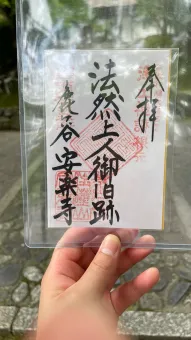 奉拝
法然上人御旧跡
鹿谷 安楽寺